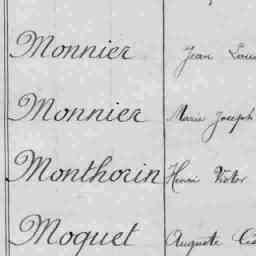 Monnier Jean Louis
Monnier Marie Joseph
Monthorin Henri Victor
Moquet Auguste